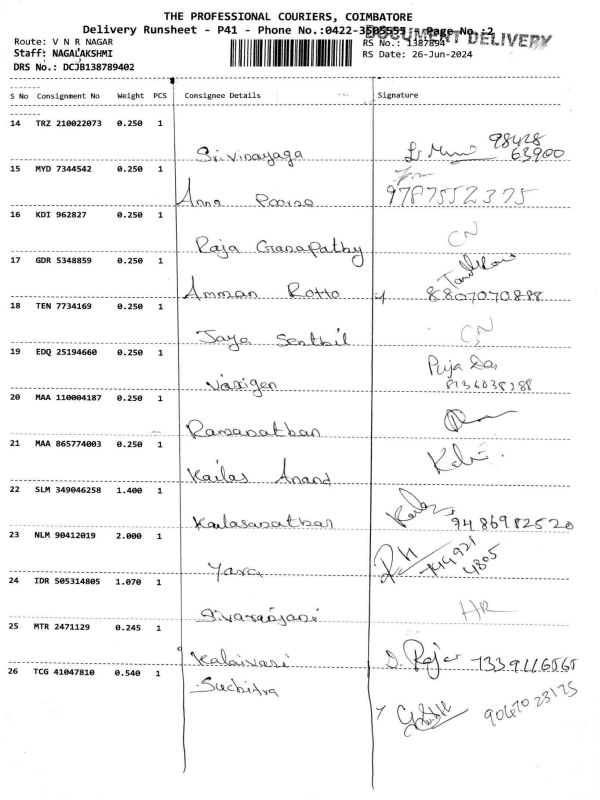 THE PROFESSIONAL COURIERS, COIMBATORE
Delivery Runsheet - P41 - Phone No.:0422- Page No.:2
DOCUMENT DELIVERY
Route: V N R NAGAR RS No.: 1387894
Staff: NAGALAKSHMI RS Date: 26-Jun-2024
DRS No.: DCJB138789402
S No Consignment No Weight PCS Consignee Details Signature
14 TRZ 210022073 0.250 1
Srivinayaga 98428
63900
15 MYD 7344542 0.250 1
Anna Poorna 9787552375
16 KDI 962827 0.250 1
Raja Ganapathy CN
17 GDR 5348859 0.250 1
Amman Rotto 8807070888
18 TEN 7734169 0.250 1
Jaya Senthil CN
19 EDQ 25194660 0.250 1
Puja Das
8136038288
20 MAA 110004187 0.250 1
Ramanathan
21 MAA 865774003 0.250 1
Kailas Anand
22 SLM 349046258 1.400 1
Kailasanathan 9486982520
23 NLM 90412019 2.000 1
Yara 4805
24 IDR 505314805 1.070 1
Sivaranjani HR
25 MTR 2471129 0.245 1
Kalaivani D. Raja 7339116565
26 TCG 41047810 0.540 1
Suchitra